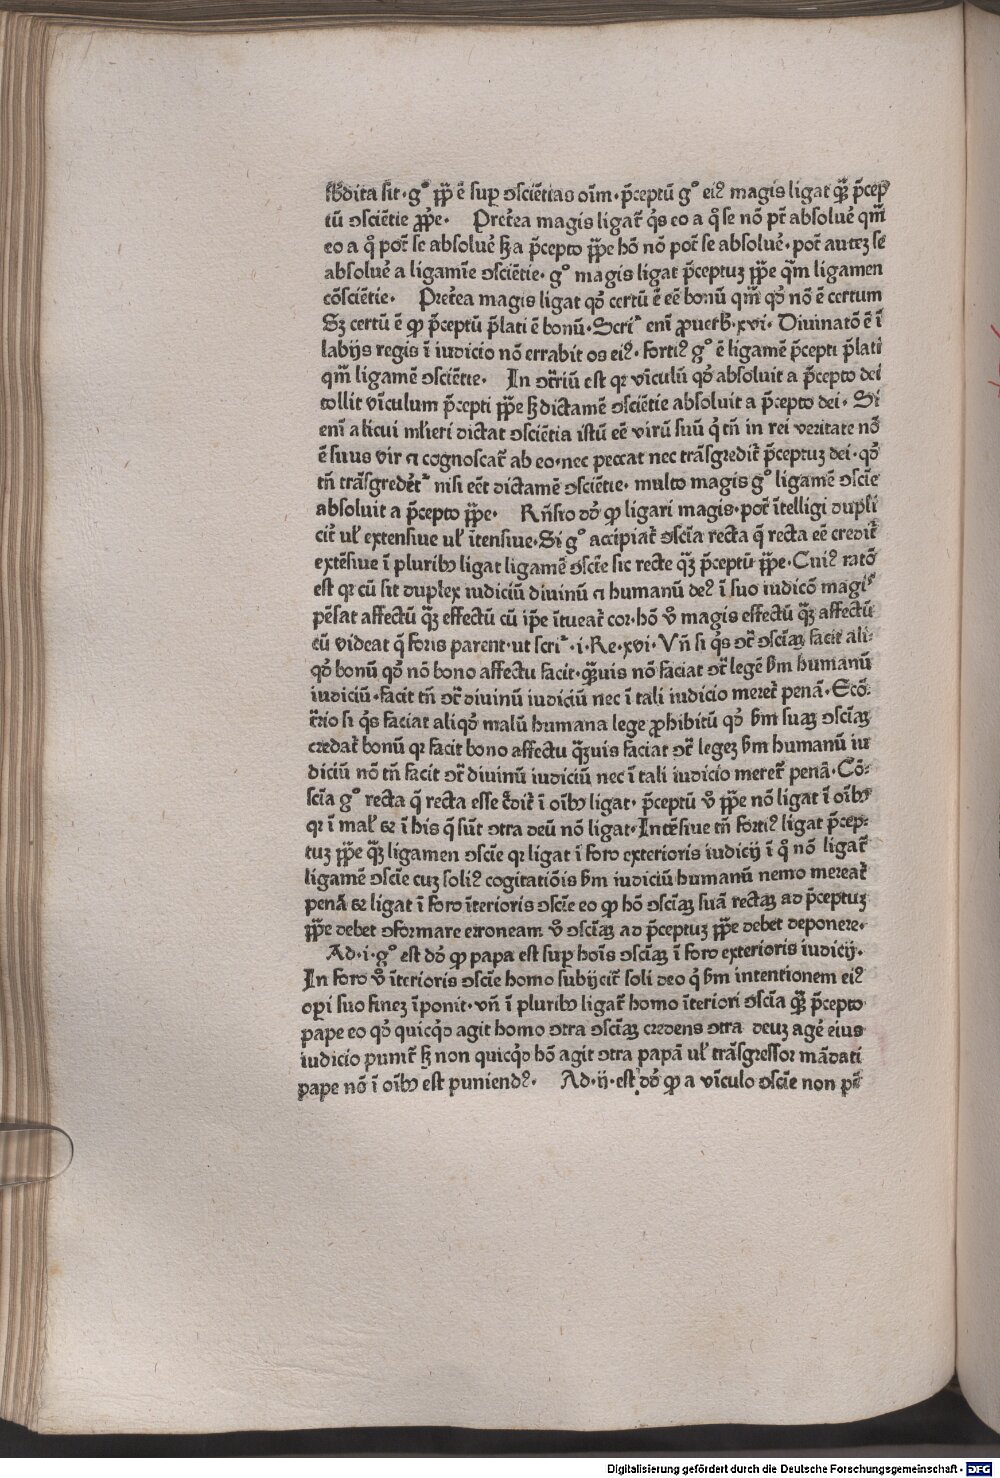 s̄bdita sit · gͦ ꝓp̄e ē sup̱ ↄsciētias oīm · p̄ceptū gͦ eiꝰ magis ligat q̄ȝ p̄cep
tū ↄsciētie ꝓp̄e · Pret̄ea magis ligat̄ q̇s eo a q̊ se nō pt̄ absolue᷑ qm̄
eo a q̊ pot̄ se absolue᷑ sȝ a p̄cepto pp̄e hō nō pot̄ se absolue᷑ · pot̄ auteȝ se
absolue᷑ a ligamīe ↄsciētie · gͦ magis ligat p̄ceptuȝ pp̄e qm̄ ligamen
cōsciētie · Pret̄ea magis ligat qđ certū ē eē bonū qm̄ qđ nō ē certum
Sȝ certū ē ꝙ p̄ceptū p̄lati ē bonū · Scriᵗ enī ꝓuerb̄ · xvi · Diuinatō ē ī
labijs regis ī iudicio nō errabit os eiꝰ · fortiꝰ gͦ ē ligamē p̄cepti p̄lati
qm̄ ligamē ↄsciētie · In ↄt̄riū est qr vīculū qđ absoluit a p̄cepto dei
tollit vīculum p̄cepti pp̄e sȝ dictamē ↄsciētie absoluit a p̄cepto dei · Si
enī alicui ml̄ieri dictat ↄsciētia istū eē virū suū q̇ tn̄ in rei veritate nō
ē suus vir ⁊ cognoscat̄ ab eo · nec peccat nec trāsgredit̄ p̄ceptuȝ dei · qđ
tn̄ trāsgredēt᷑ nisi eēt dictamē ↄsciētie · multo magis gͦ ligamē ↄscīe
absoluit a p̄cepto pp̄e · Rn̄sio dō ꝙ ligari magis · pot̄ ītelligi dupli
cit̄ ul̄ extensiue ul̄ ītensiue · Si gͦ accipiat̄ ↄscīa recta q̄ recta eē credit̄
extēsiue ī pluribꝰ ligat ligamē ↄscīe sic recte q̄ȝ p̄ceptū pp̄e · Cuiꝰ ratō
est qr cū sit duplex iudiciū diuinū ⁊ humanū deꝰ ī suo iudicō magiˢ
pēsat affectū q̄ȝ effectū cū ip̄e ītueat̄ cor · hō v̊ magis effectū q̄ȝ affectū
cū videat q̄ foris parent · ut scriᵗ · i · Re · xvi · Vn̄ si q̇s ↄt̄ ↄscīaȝ facit ali-
qđ bonū qđ nō bono affectu facit · q̄ȝuis nō faciat ↄt̄ legē s̄m humanū
iudiciū · facit tn̄ ↄt̄ diuinū iudiciū nec ī tali iudicio meret̄ penā · Ecō-
t̄rio si q̇s faciat aliqđ malū humana lege ꝓhibitū qđ s̄m suaȝ ↄscīaȝ
credat̄ bonū qr facit bono affectu q̄ȝuis faciat ↄt̄ legeȝ s̄m humanū iu
diciū nō tn̄ facit ↄt̄ diuinū iudiciū nec ī tali iudicio meret̄ penā · Cō-
scīa gͦ recta q̄ recta esse c̄dit̄ ī oībꝰ ligat · p̄ceptū v̊ pp̄e nō ligat ī oībꝰ
qr ī mal̄ ⁊ ī his q̄ sūt ↄtra deū nō ligat · Intēsiue tn̄ fortiꝰ ligat p̄cep-
tuȝ pp̄e q̄ȝ ligamen ↄscīe qr ligat ī foro exterioris iudicij ī q̊ nō ligat̄
ligamē ↄscīe cuȝ soliꝰ cogitatiōis s̄m iudiciū humanū nemo mereat̄
penā ⁊ ligat ī foro īterioris ↄscīe eo ꝙ hō ↄscīaȝ suā rectaȝ ad p̄ceptuȝ
pp̄e debet ↄformare erroneam v̊ ↄscīaȝ ad p̄ceptuȝ pp̄e debet deponere ·
Ad · i · gͦ est dō ꝙ papa est sup̱ hoīs ↄscīaȝ ī foro exterioris iudicij ·
In foro v̊ īterioris ↄscīe homo subijcit̄ soli deo q̇ s̄m intentionem eiꝰ
oꝑi suo fineȝ īponit · vn̄ ī pluribꝰ ligat̄ homo īteriori ↄscīa q̄ȝ p̄cepto
pape eo qđ quicqđ agit homo ↄtra ↄscīaȝ credens ↄtra deuȝ age᷑ eius
iudicio punit̄ sȝ non quicqđ hō agit ↄtra papā ul̄ trāsgressor mādati
pape nō ī oībꝰ est puniendꝰ · Ad · ij · est dō ꝙ a vīculo ↄscīe non pt̄
Digitalisierung gefördert durch die Deutsche Forschungsgemeinschaft - DFG